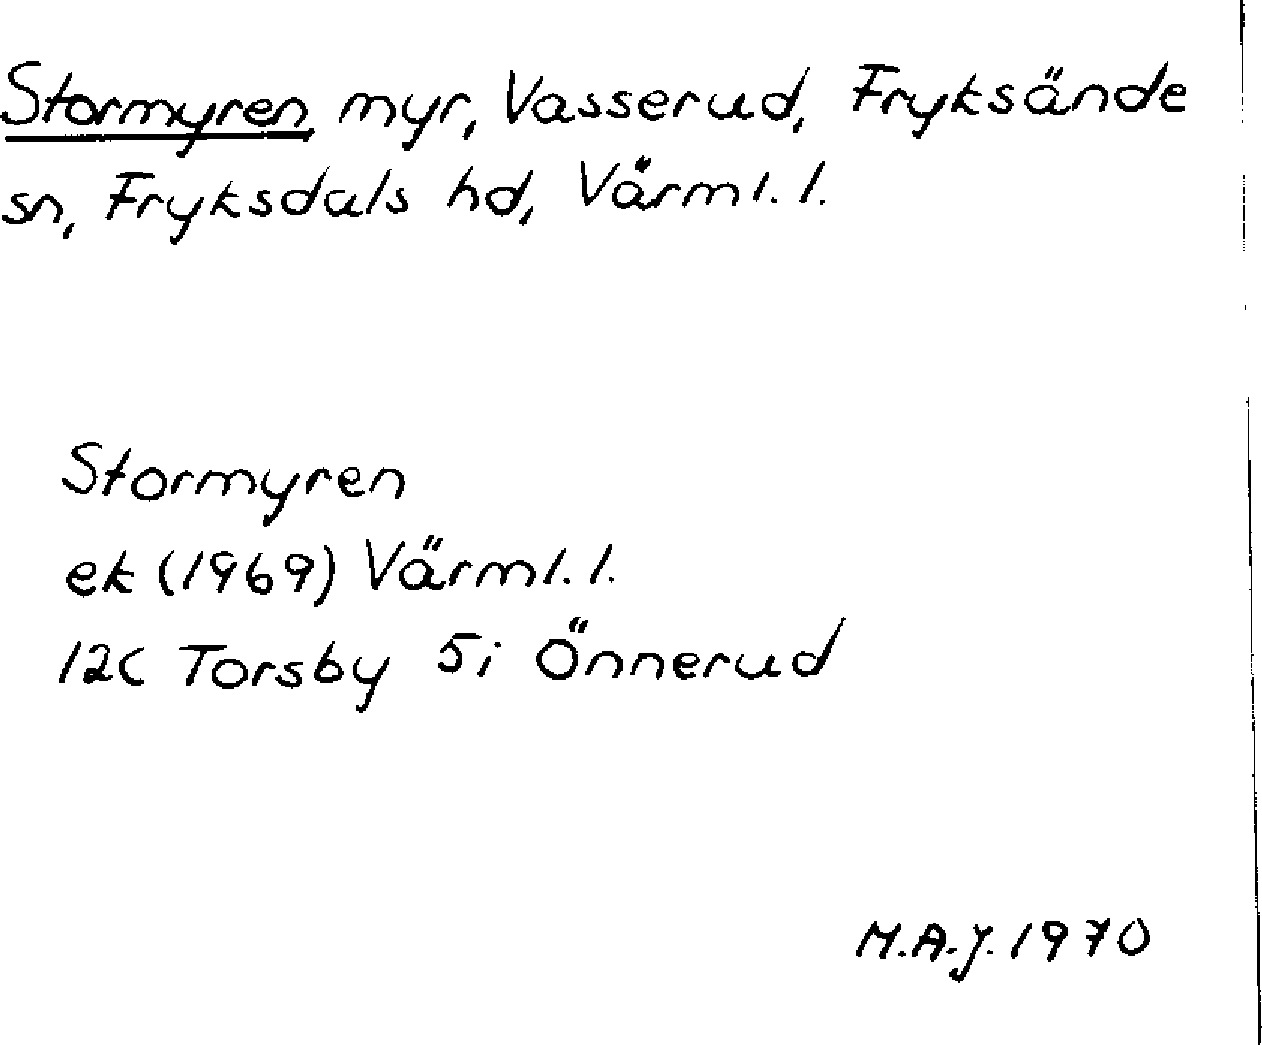 Stormyren myr, Vasserud, Fryksände
sn, Fryksdals hd, Värml. l.
Stormyren
ek (1969) Värml. l.
12C Torsby 5i Önnerud
M.A.J. 1970